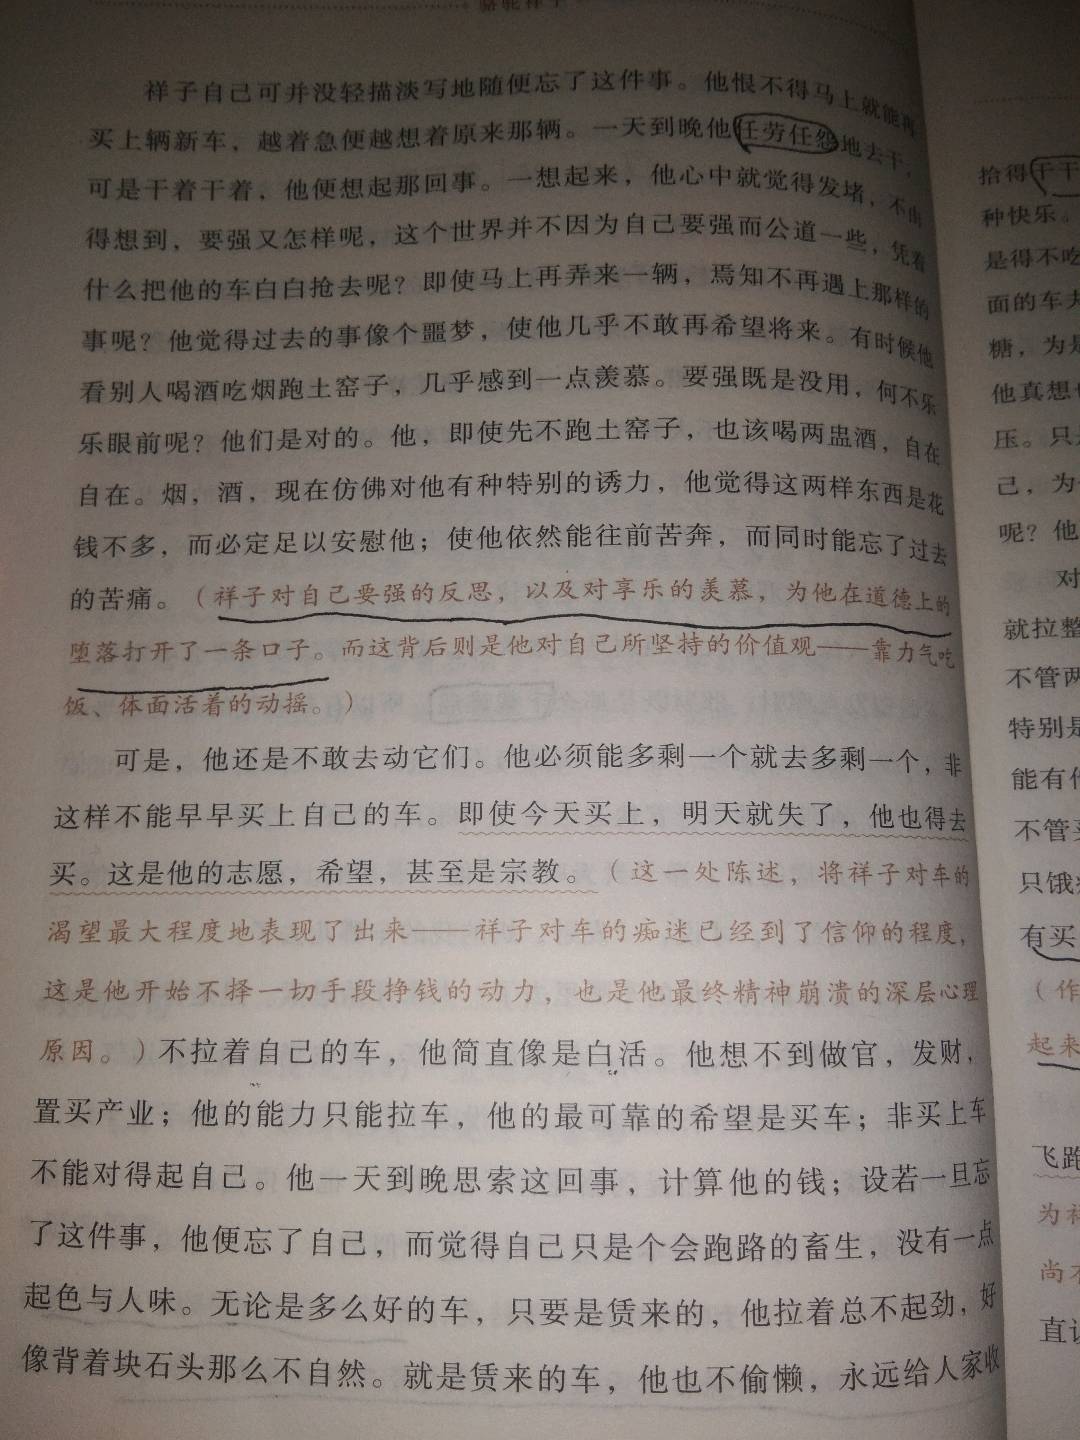 骆驼祥子
祥子自己可并没轻描淡写地随便忘了这件事。他恨不得马上就能再
买上辆新车，越着急便越想着原来那辆。一天到晚他任劳任怨地去干，
可是干着干着，他便想起那回事。一想起来，他心中就觉得发堵，不由
得想到，要强又怎样呢，这个世界并不因为自己要强而公道一些，凭着
什么把他的车白白抢去呢？即使马上再弄来一辆，焉知不再遇上那样的
事呢？他觉得过去的事像个噩梦，使他几乎不敢再希望将来。有时候他
看别人喝酒吃烟跑土窑子，几乎感到一点羡慕。要强既是没用，何不乐
乐眼前呢？他们是对的。他，即使先不跑土窑子，也该喝两盅酒，自在
自在。烟，酒，现在仿佛对他有种特别的诱力，他觉得这两样东西是花
钱不多，而必定足以安慰他；使他依然能往前苦奔，而同时能忘了过去
的苦痛。（祥子对自己要强的反思，以及对享乐的羡慕，为他在道德上的
堕落打开了一条口子。而这背后则是他对自己所坚持的价值观——靠力气吃
饭、体面活着的动摇。）
可是，他还是不敢去动它们。他必须能多剩一个就去多剩一个，非
这样不能早早买上自己的车。即使今天买上，明天就失了，他也得去
买。这是他的志愿，希望，甚至是宗教。（这一处陈述，将祥子对车的
渴望最大程度地表现了出来——祥子对车的痴迷已经到了信仰的程度，
这是他开始不择一切手段挣钱的动力，也是他最终精神崩溃的深层心理
原因。）不拉着自己的车，他简直像是白活。他想不到做官，发财，
置买产业；他的能力只能拉车，他的最可靠的希望是买车；非买上车
不能对得起自己。他一天到晚思索这回事，计算他的钱；设若一旦忘
了这件事，他便忘了自己，而觉得自己只是个会跑路的畜生，没有一点
起色与人味。无论是多么好的车，只要是赁来的，他拉着总不起劲，好
像背着块石头那么不自然。就是赁来的车，他也不偷懒，永远给人家收
拾得干干
种快乐。
是得不吃
面的车夫
糖，为是
他真想
压。只
己，为
呢？他
对
就拉整
不管两
特别是
能有什
不管
只饿
有买
（作
起来
飞跑
为祥
尚不
直